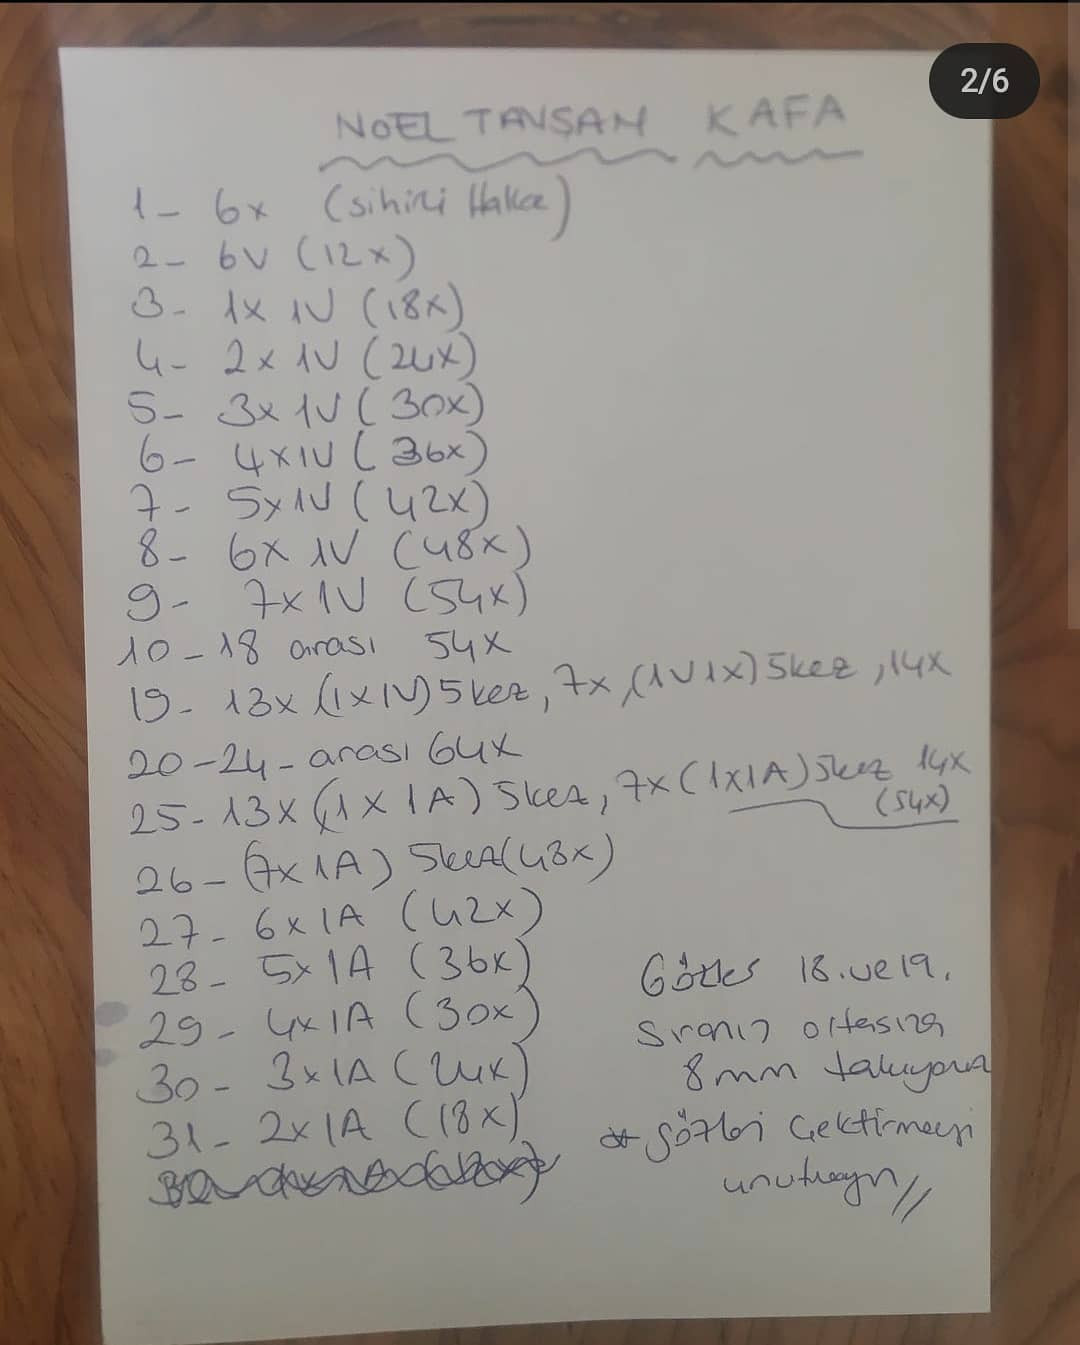 2/6
NOEL TAVŞAN KAFA
1- 6x (sihirli Halka)
2- 6V (12x)
3- 1x 1V (18x)
4- 2x 1V (24x)
5- 3x 1V (30x)
6- 4x1V (36x)
7- 5x1V (42x)
8- 6x 1V (48x)
9- 7x1V (54x)
10-18 arası 54x
19- 13x (1x1V) 5 kez, 7x, (1V1x) 5kez, 14x
20-24- arası 64x
25- 13x (1x 1A) 5kez, 7x (1x1A) 5kez 14x
(54x)
26- (7x 1A) 5kez (48x)
27- 6x 1A (42x)
28- 5x 1A (36x)
29- 4x1A (30x)
30- 3x1A (24x)
31- 2x1A (18x)
Gözler 18.ve19.
Sıranın ortasına
8mm takıyoruz
* gözleri çektirmeyi
unutmayın //